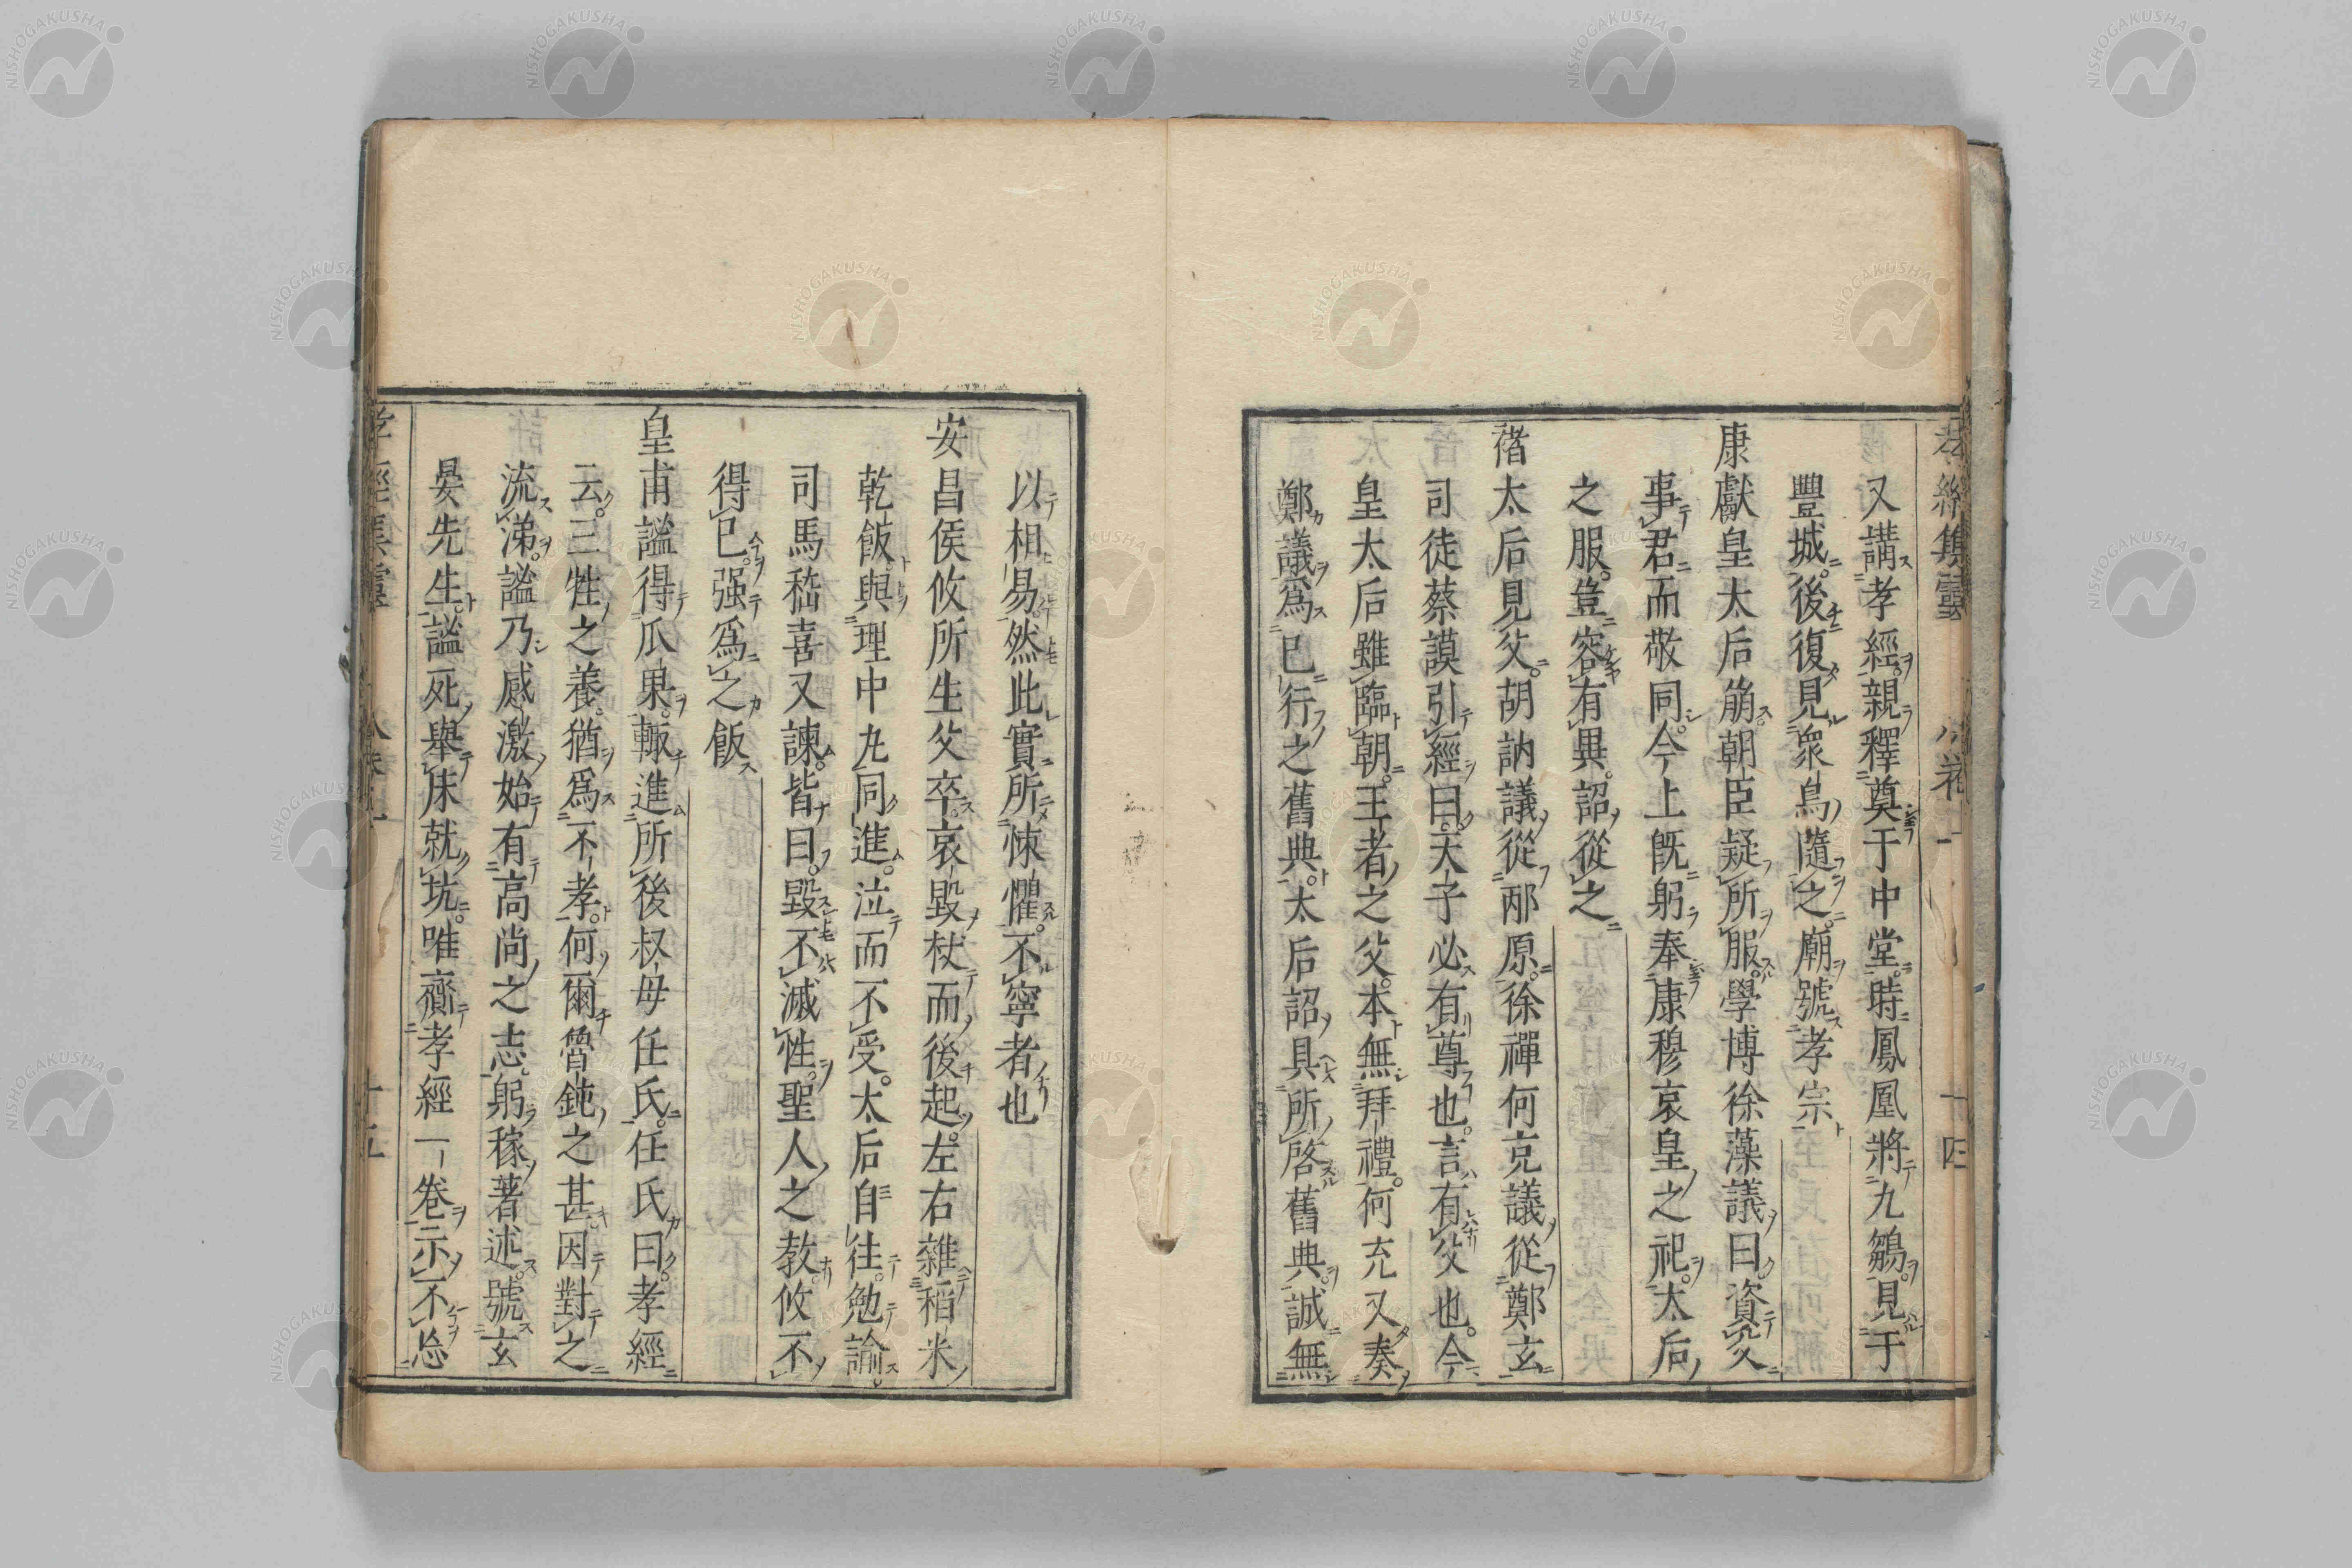 又講孝經親釋奠于中堂時鳳凰將九鶵見于
豐城後復見衆鳥隨之廟號孝宗
康獻皇太后崩朝臣疑所服學博徐藻議曰資父
事君而敬同今上旣躬奉康穆哀皇之祀太后
之服豈容有異詔從之
褚太后見父胡訥議從邴原徐禪何克議從鄭玄
司徒蔡謨引經曰天子必有尊也言有父也今
皇太后雖臨朝王者之父本無拜禮何充又奏
鄭議爲已行之舊典太后詔具所啓舊典誠無
以相易然此實所悚懼不寧者也
安昌侯攸所生父卒哀毀杖而後起左右雜稻米
乾飯與理中丸同進泣而不受太后自往勉諭
司馬嵇喜又諫皆曰毀不滅性聖人之教攸不
得已强爲之飯
皇甫謐得瓜果輙進所後叔母任氏任氏曰孝經
云三牲之養猶爲不孝何爾魯鈍之甚因對之
流涕謐乃感激始有高尚之志躬稼著述號玄
晏先生謐死舉床就坑唯齎孝經一卷示不忘
NISHOGAKUSHA